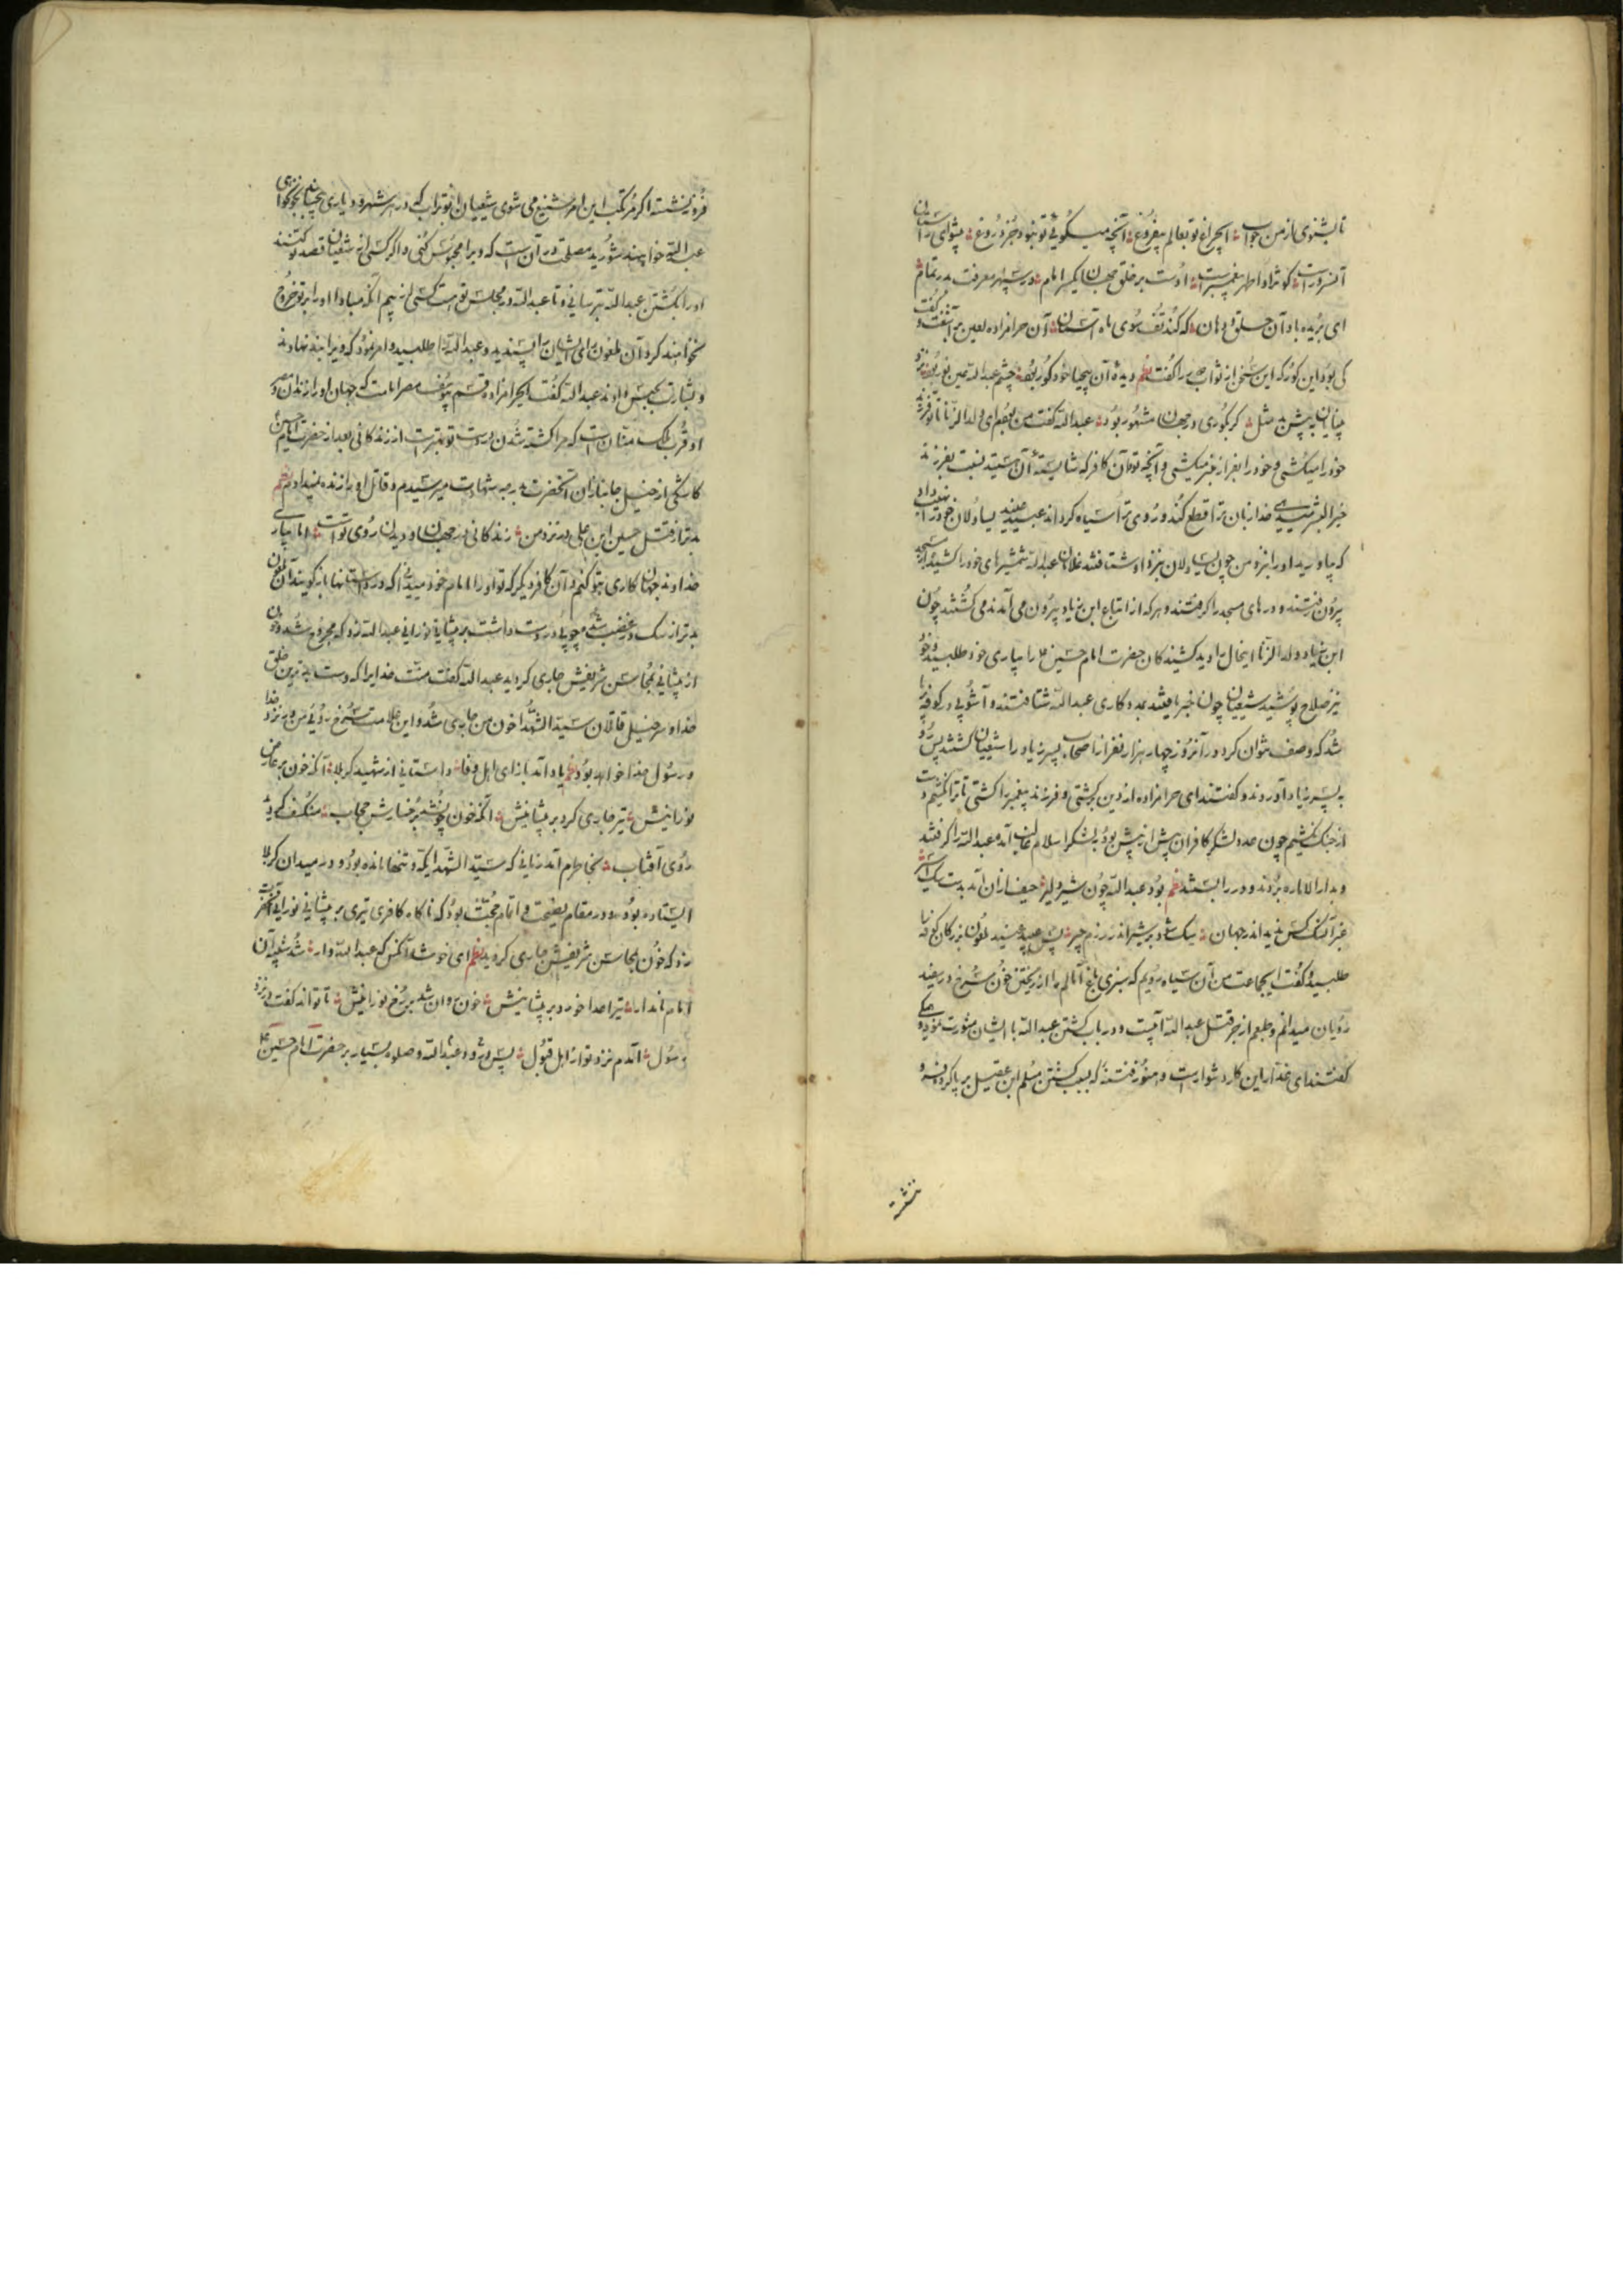 تا بشنوی از من جواب ؞ ای چراغ تو بعالم بیفروغ ؞ آنچه میگوئی تو نبود جز دروغ ؞ پیشوای راستان
آنسرور است ؞ کو نژاد اطهر پیغمبر است ؞ اوست بر خلق جهان یکسر امام ؞ در سپهر معرفت بدر تمام ؞
ای بریده باد آن حلق و دهان ؞ که کند تف سوی ماه آسمان ؞ آن حرامزاده لعین بر آشفت و گفت
کی بود این کور که این سخن از ثواب مرا گفت نظم دیدهٔ آن بیحیا خود کور بود ؞ چشم عبدالله عین نور بود ؞ نزد
بینایان به پیش بد مثل ؞ گر بکوری در جهان مشهور بود ؞ عبدالله گفت من بغیرم ای ولد الزنا تا تو فرزند
خود را میکشی و خود را بغیر از غیر میکشی و آنچه تو و آن کافر که شایستهٔ آن هستید نسبت بفرزند
خیر البشر میدهید خدا زبان ترا قطع کند و روی ترا سیاه گرداند عبید پلید یساولان خود را نهیب داد
که بیاورید او را نزد من چون یساولان بنزد او شتافتند غلامان عبدالله شمشیرهای خود را کشیده از مسجد
بیرون رفتند و درهای مسجد را گرفتند و هر که از اتباع ابن زیاد بیرون می آمدند می کشتند چون
ابن زیاد ولد الزنا اینحال را دید کشندگان حضرت امام حسین ع را بیاری خود طلبید و خود
نیز صلاح پوشید شیعیان چون خبر یافتند بمددکاری عبدالله شتافتند و آشوبی در کوفه برپا
شد که وصف نتوان کرد در آنروز چهار هزار نفر از اصحاب پسر زیاد را شیعیان کشتند پس رو
به پسر زیاد آوردند و گفتند ای حرامزاده از دین برگشتی و فرزند پیغمبر را کشتی تا ترا نکشیم دست
از جنگ نکشیم چون عدد لشکر کافران بیش از پیش بود به لشکر اسلام غالب آمد عبدالله را گرفتند
و بدار الاماره بردند و در را بستند نظم بود عبدالله چون شیر دلیر ؞ حیف از آن آمد بدست سگ اسیر ؞
غیر آن کس ندید اندر جهان ؞ سگ شود بر شیر اندر رزم چیر ؞ پس عبید پلید ملعون بزرگان کوفه را
طلبید و گفت ایجماعت من آن سیاه رویم که سبزی باغ آمالم را از ریختن خون سرخ در سفید
رویان میدانم و طمعم از جز قتل عبدالله نیست و در باب کشتن عبدالله با ایشان مشورت نمود یکی
گفتند ای غدار این کار دشوار است و هنوز فتنهٔ که بسبب کشتن مسلم ابن عقیل بر پا کردهٔ
فرو ننشسته اگر مرتکب این امر شنیع می شوی شیعیان ابوتراب که در هر شهر و دیاری
عبدالله خواهند شورید مصلحت در آن است که ویرا محبوس کنی و اگر کسی از شیعیان قصد تو کنند
او را بکشتن عبدالله بترسانی و تا عبدالله در مجلس تو است کسی از بیم آنکه مبادا او را بر تو خروج
نخواهند کرد آن ملعون رای ایشان را پسندید و عبدالله را طلبید و امر نمود که ویرا بند نهادند
و بشارت بحبس دادند عبدالله گفت ای حرامزاده قسم بیوسف مصر امامت که جهان او را زندان بود
و قرب ملک منان است که مرا کشته شدن بدست تو بهتر است از زندگانی بعد از حضرت امام حسین ع
کاشکی از خیل جانبازان آنحضرت بدرجه شهادت میرسیدم و قاتل او را زنده نمیدیدم نظم
بدتر از قتل حسین ابن علی در نزد من ؞ زندگانی در جهان و دیدن روی تو است ؞ اما بیاری
خداوند جهان کاری بتو کنم و آن کافر دیگر که تو او را امام خود میدانی که در داستانها باز گویند آن ملعون
بدتر از سگ در غضب شد چوبی در دست داشت بر پیشانی نورانی عبدالله زد که مجروح شد و خون
از پیشانی بمحاسن شریفش جاری گردید عبدالله گفت منت خدایرا که بدست بدترین خلق
خدا و سر خیل قاتلان سید الشهدا خون من جاری شد و این علامت سرخ روئی من در نزد خدا
و رسول خدا خواهد بود نظم یاد آمد باز ای اهل وفا ؞ داستانی از شهید کربلا ؞ آنکه خون بر عارض
نورانیش ؞ تیر جاری کرد بر پیشانیش ؞ آنکه خون پوشید بر رخسارش حجاب ؞ منکسف گردید
روی آفتاب ؞ بخاطرم آمد زمانی که سید الشهدا یکه و تنها مانده بود و در میدان کربلا
ایستاده بود و در مقام نصیحت و اتمام حجت بود که ناگاه کافری تیری بر پیشانی نورانی آنحضرت
زد که خون بمحاسن شریفش جاری گردید نظم ای خوشا آنکس که عبدالله وار ؞ شد شبیه آن
امام نامدار ؞ تیر اعدا خورد بر پیشانیش ؞ خون روان شد بر رخ نورانیش ؞ تا تواند گفت در نزد
رسول ؞ آمدم نزد تو از اهل قبول ؞ پس درود عبدالله و صلوه بسیار بر حضرت امام حسین ع